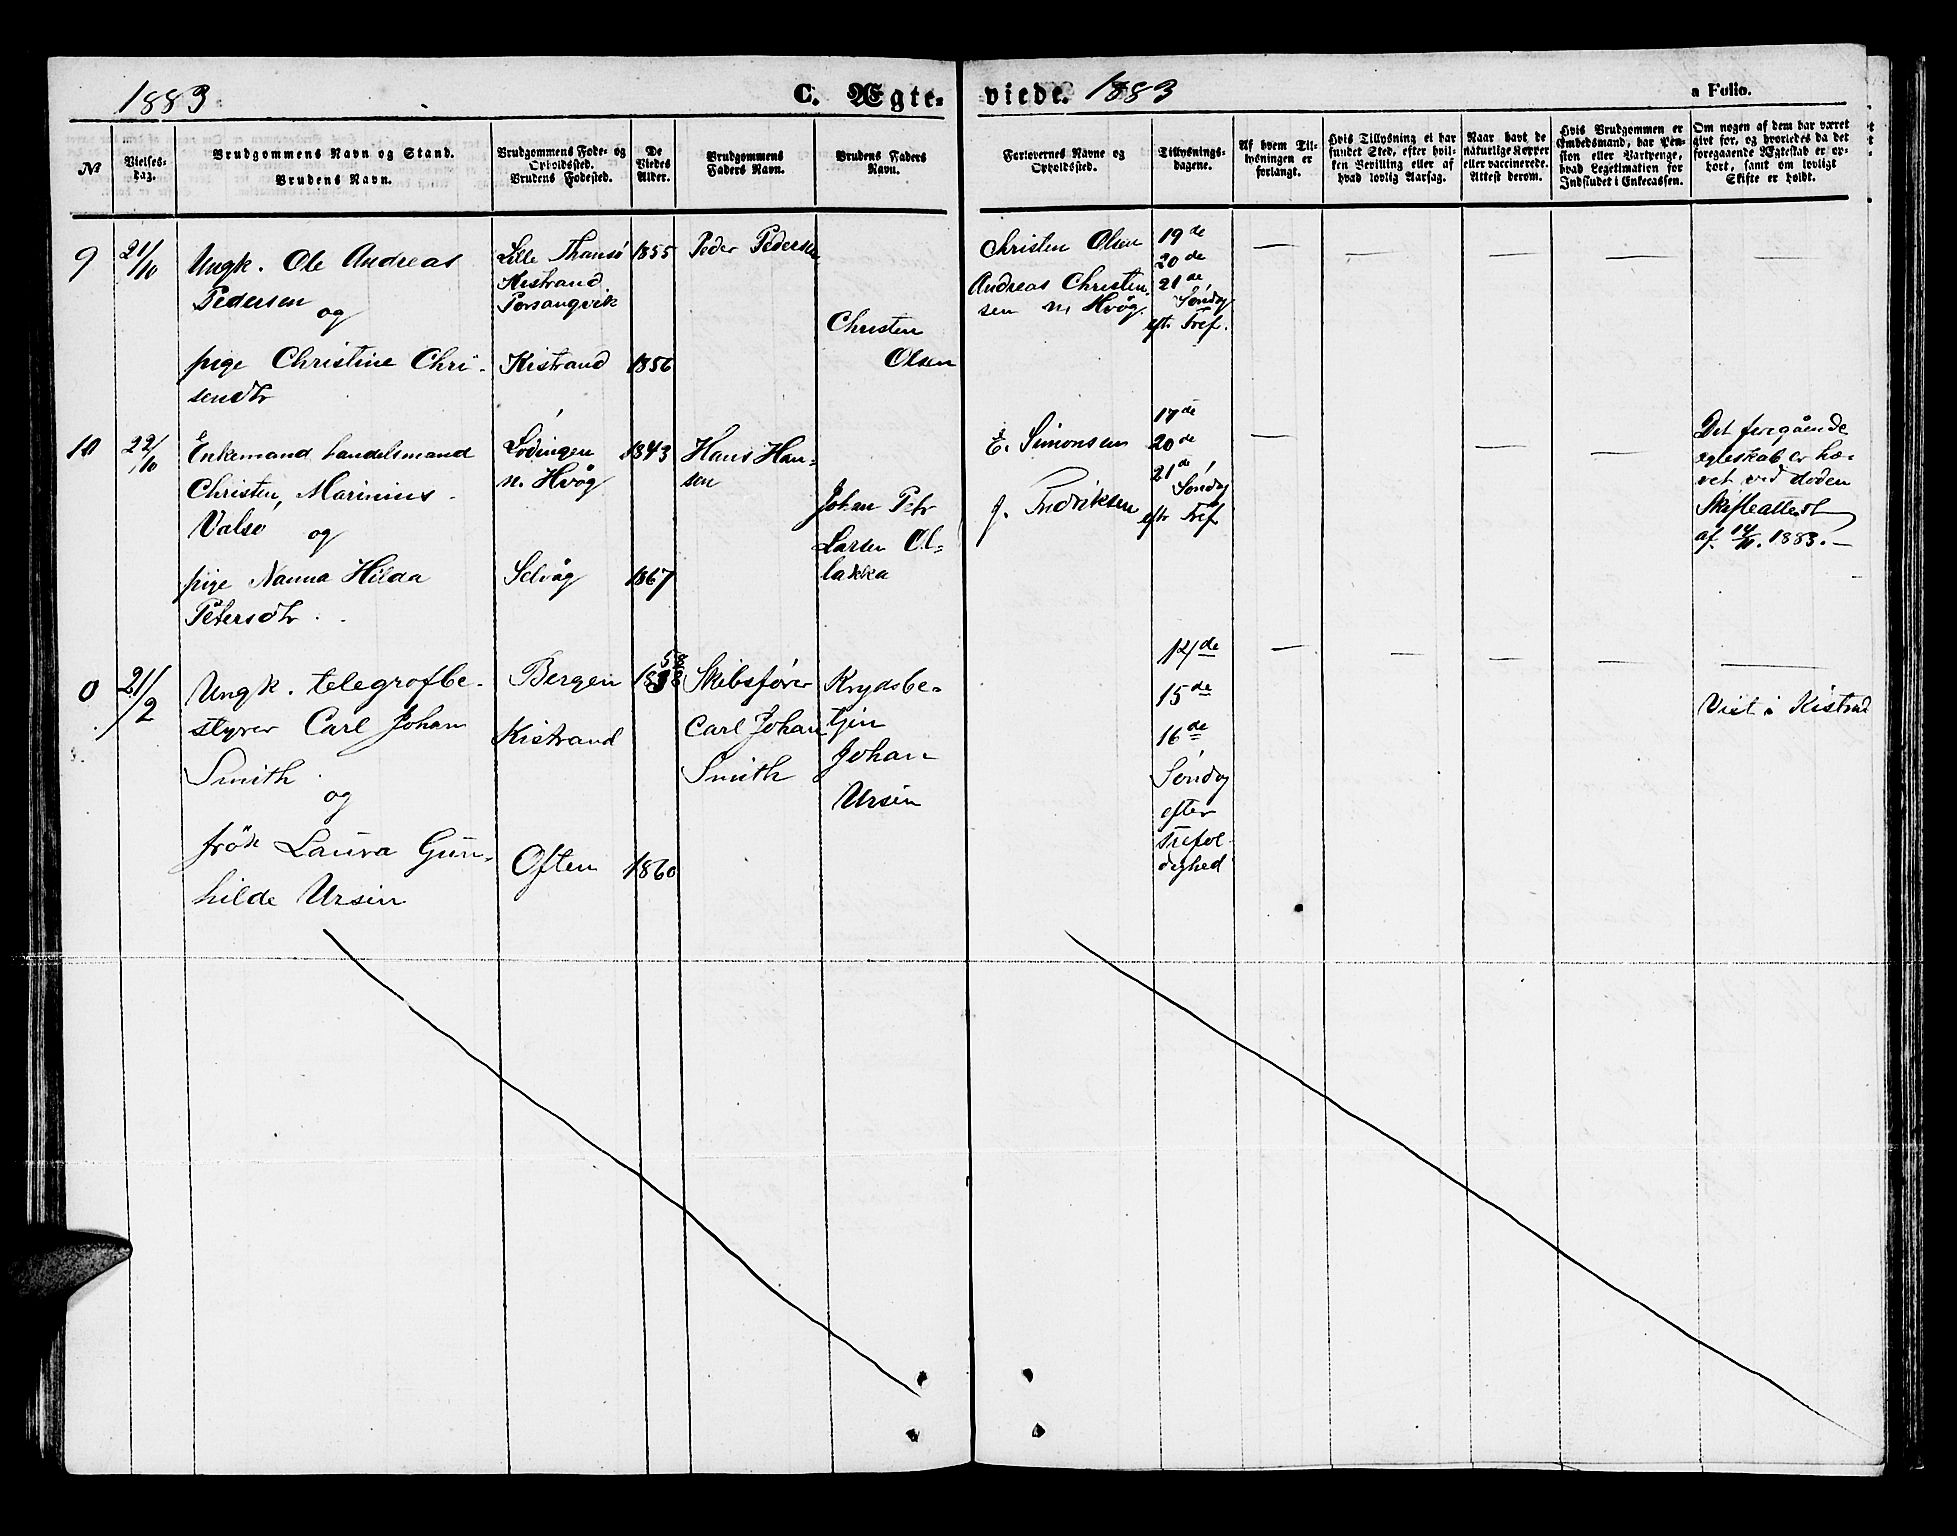 1883
C. Ægte-
viede. 1883
a Folio.
№
Vielses-
dag.
Brudgommens Navn og Stand.
Brudens Navn.
Brudgommens Føde- og
Opholdssted.
Brudens Fødested.
De
Viedes
Alder.
Brudgommens
Faders Navn.
Brudens Faders
Navn.
Forlovernes Navne og
Opholdssted.
Tillysnings-
dagene.
Af hvem Til-
lysningen er
forlangt.
Hvis Tillysning ei har
fundet Sted, efter hvil-
ken Bevilling eller af
hvad lovlig Aarsag.
Naar havt de
naturlige Kopper
eller vaccinerede.
Attest derom.
Hvis Brudgommen er
Embedsmand, har Pen-
sion eller Vartpenge,
hvad Legitimation for
Indskudet i Enkecassen.
Om nogen af dem har været
gift før, og hvorledes da det
foregaaende Ægteskab er op-
hørt, samt om lovligt
Skifte er holdt.
9
21/10
Ungk. Ole Andreas
Pedersen
og
pige Christine Chri-
sensdtr
Lille Thamsö
Kistrand.
Porsangvik
Kistrand
1855
1856
Peder Pedersen
Christen
Olsen
Christen Olsen
Andreas Christen
sen n. Hvåg.
19de
20de
21de
Søndg
eft. Tref.
10
22/10
Enkemand handelsmand
Christen, Marinius
Valsö
og
pige Nanna Hilda
Petersdtr.
Lødingen
n. Hvåg
Selvåg
1843
1867
Hans Han-
sen
Johan Petr
Larsen Ol-
lakka
E. Simonsen
J. Fredriksen
17de
20de
21de
Søndg
eftr Tref
Det foregående
egteskab er hæ-
vet ved døden
Skifteattest
af 14/11. 1883.
0
21/2
Ungk. telegrafbe-
styrer Carl Johan
Smith
og
frök Laura Gun-
hilde Ursin
Bergen
Kistrand
Often
1860
Skibsfører
Carl Johan
Smith
Krydsbe-
tjen
Johan
Ursin
12/de
15de
16de
Søndg
efter
Trefol
dighed
Viet i Kistrad